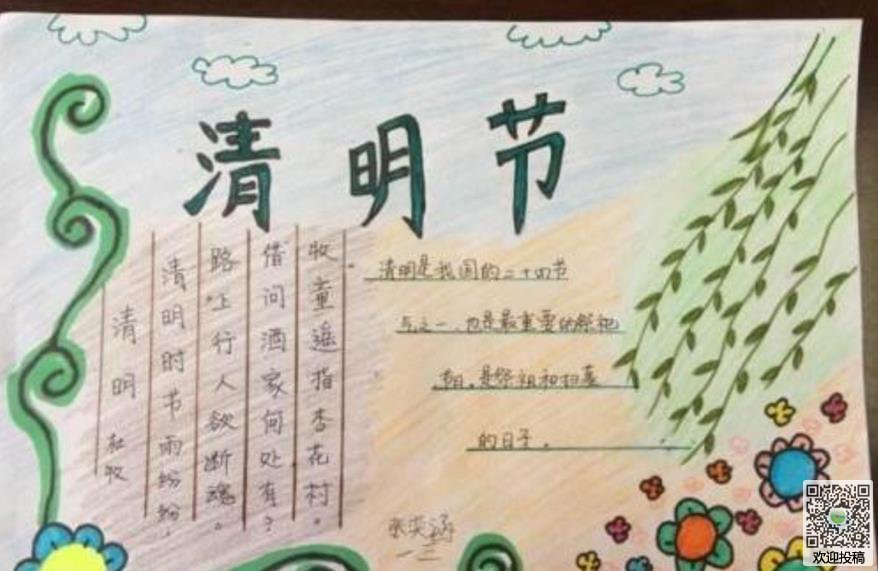 清明节
清明 杜牧
清明时节雨纷纷，
路上行人欲断魂。
借问酒家何处有？
牧童遥指杏花村。
清明是我国的二十四节
气之一，也是最重要的祭祀
节日，是祭祖和扫墓
的日子。
一三
欢迎投稿